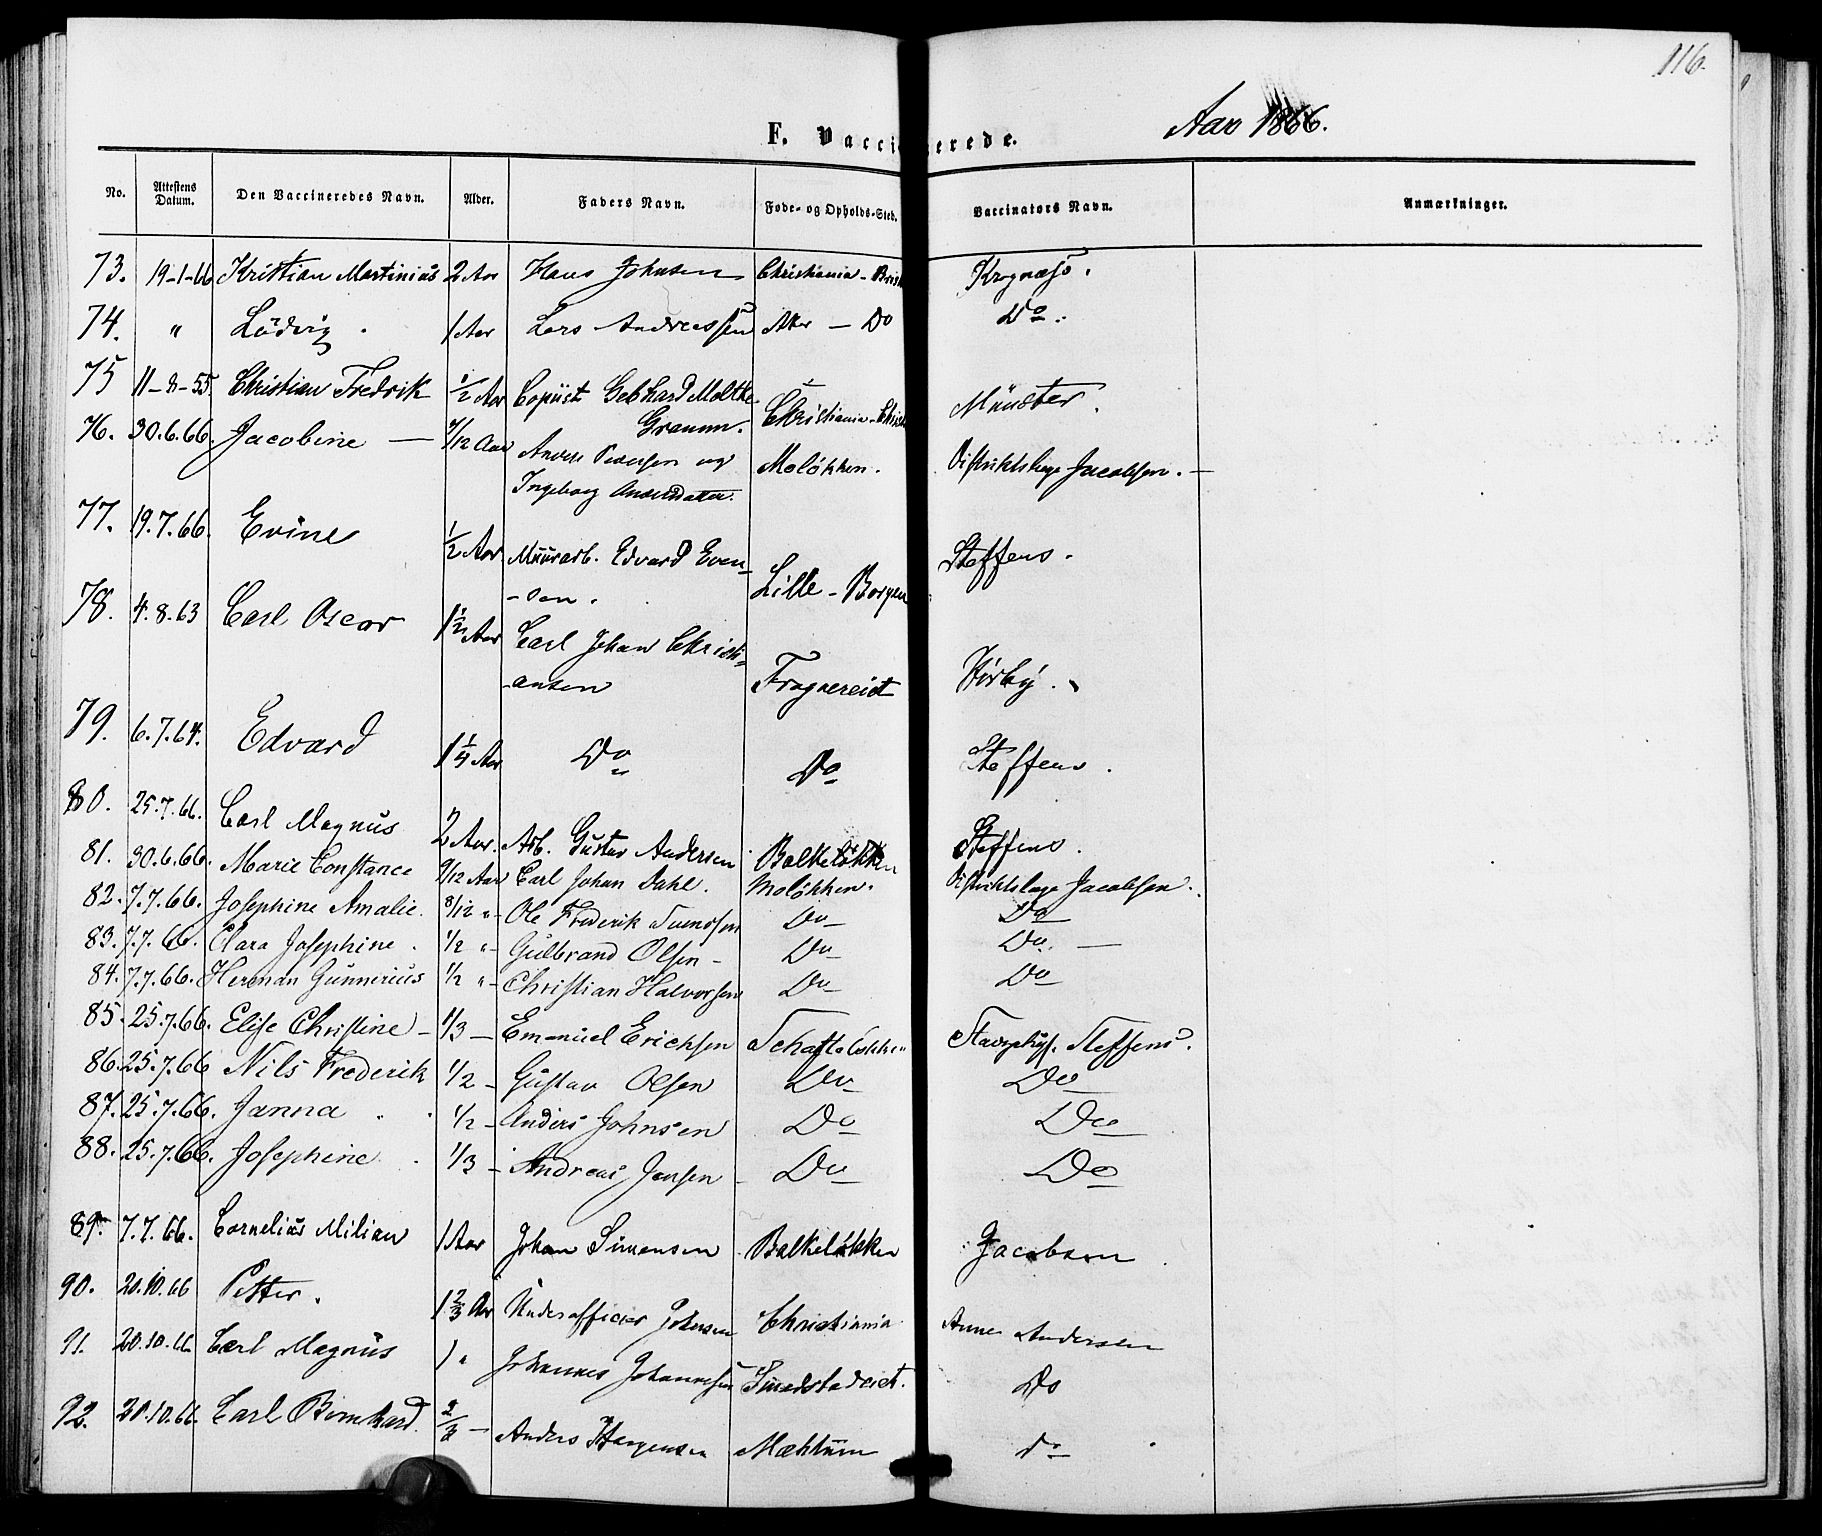 116.
F. Vaccinerede. Aar 1866.
No. Attestens Datum. Den Vaccineredes Navn. Alder. Faders Navn. Føde- og Opholds-Sted. Vaccinators Navn. Anmærkninger.
73. 19-1-66 Kristian Martinius 2 Aar Hans Johnsen Christiania - Krognæss.
74. " Ludvig. 1 Aar Lars Andreassen Aker - Do Do.
75 11-8-55. Christian Fredrik 1/2 Aar Copiist Gebhard Moltke Christiania - Münster.
Gramm.
76. 30.6.66. Jacobine — 7/12 Aar Anders Pedersen og Moløkken. Distriktslæge Jacobsen. —
Ingeborg Andersdatter.
77. 19.7.66. Evine 1/2 Aar Muurarb. Edvard Even- Lille - Borgen Steffens.
-sen.
78. 4.8.63 Carl Oscar 1 1/2 Aar Carl Johan Christi- Frognereiet
-ansen
79. 6.7.64. Edvard 1 1/4 Aar Do Do Steffens.
80. 25.7.66. Carl Magnus 2 Aar. Arb. Gustav Andersen Balkeløkken Steffens.
81. 30.6.66. Marie Constance 9/12 Aar Carl Johan Dahl. Moløkken. Distriktslæge Jacobsen.
82. 7.7.66. Josephine Amalie. 8/12 " Ole Frederik Svendsen Do Do
83. 7.7.66. Clara Josephine. 1/2 " Gulbrand Olsen - Do Do. —
84. 7.7.66. Herman Gunnerius 1/2 " Christian Halvorsen Do Do
85. 25.7.66. Elise Christine - 1/3 — Emanuel Erichsen Schafteløkken Steffens.
86. 25.7.66 Nils Frederik 1/2 - Gustav Olsen Do Do
87. 25.7.66. Janna 1/2 - Anders Johnsen Do Do
88. 25.7.66. Josephine 1/3 - Andreas Jensen Do Do
89. 7.7.66. Cornelius Milian 1 Aar Johan Simensen Balkeløkken Jacobsen
90. 20.10.66 Petter. 1 2/3 Aar Underofficier Johnsen Christiania Anne Andersen
91. 20.10.66 Carl Magnus 1 " Johannes Johannesen Smedstadeiet. Do
92. 20.10.66 Carl Bernhard. 2/3 - Anders Mæhlum do